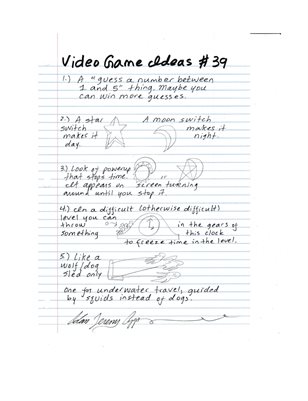 Video Game Ideas #39
1.) A "guess a number between
1 and 5" thing. Maybe you
can win more guesses.
2.) A star A moon switch
switch makes it
makes it night.
day.
3.) Look of powerup
that stops time. or
It appears on screen turning
around until you stop it.
4.) In a difficult (otherwise difficult)
level you can
throw in the gears of
something this clock
to freeze time in the level.
5.) Like a
wolf/dog
sled only
one for underwater travel, guided
by squids instead of dogs.